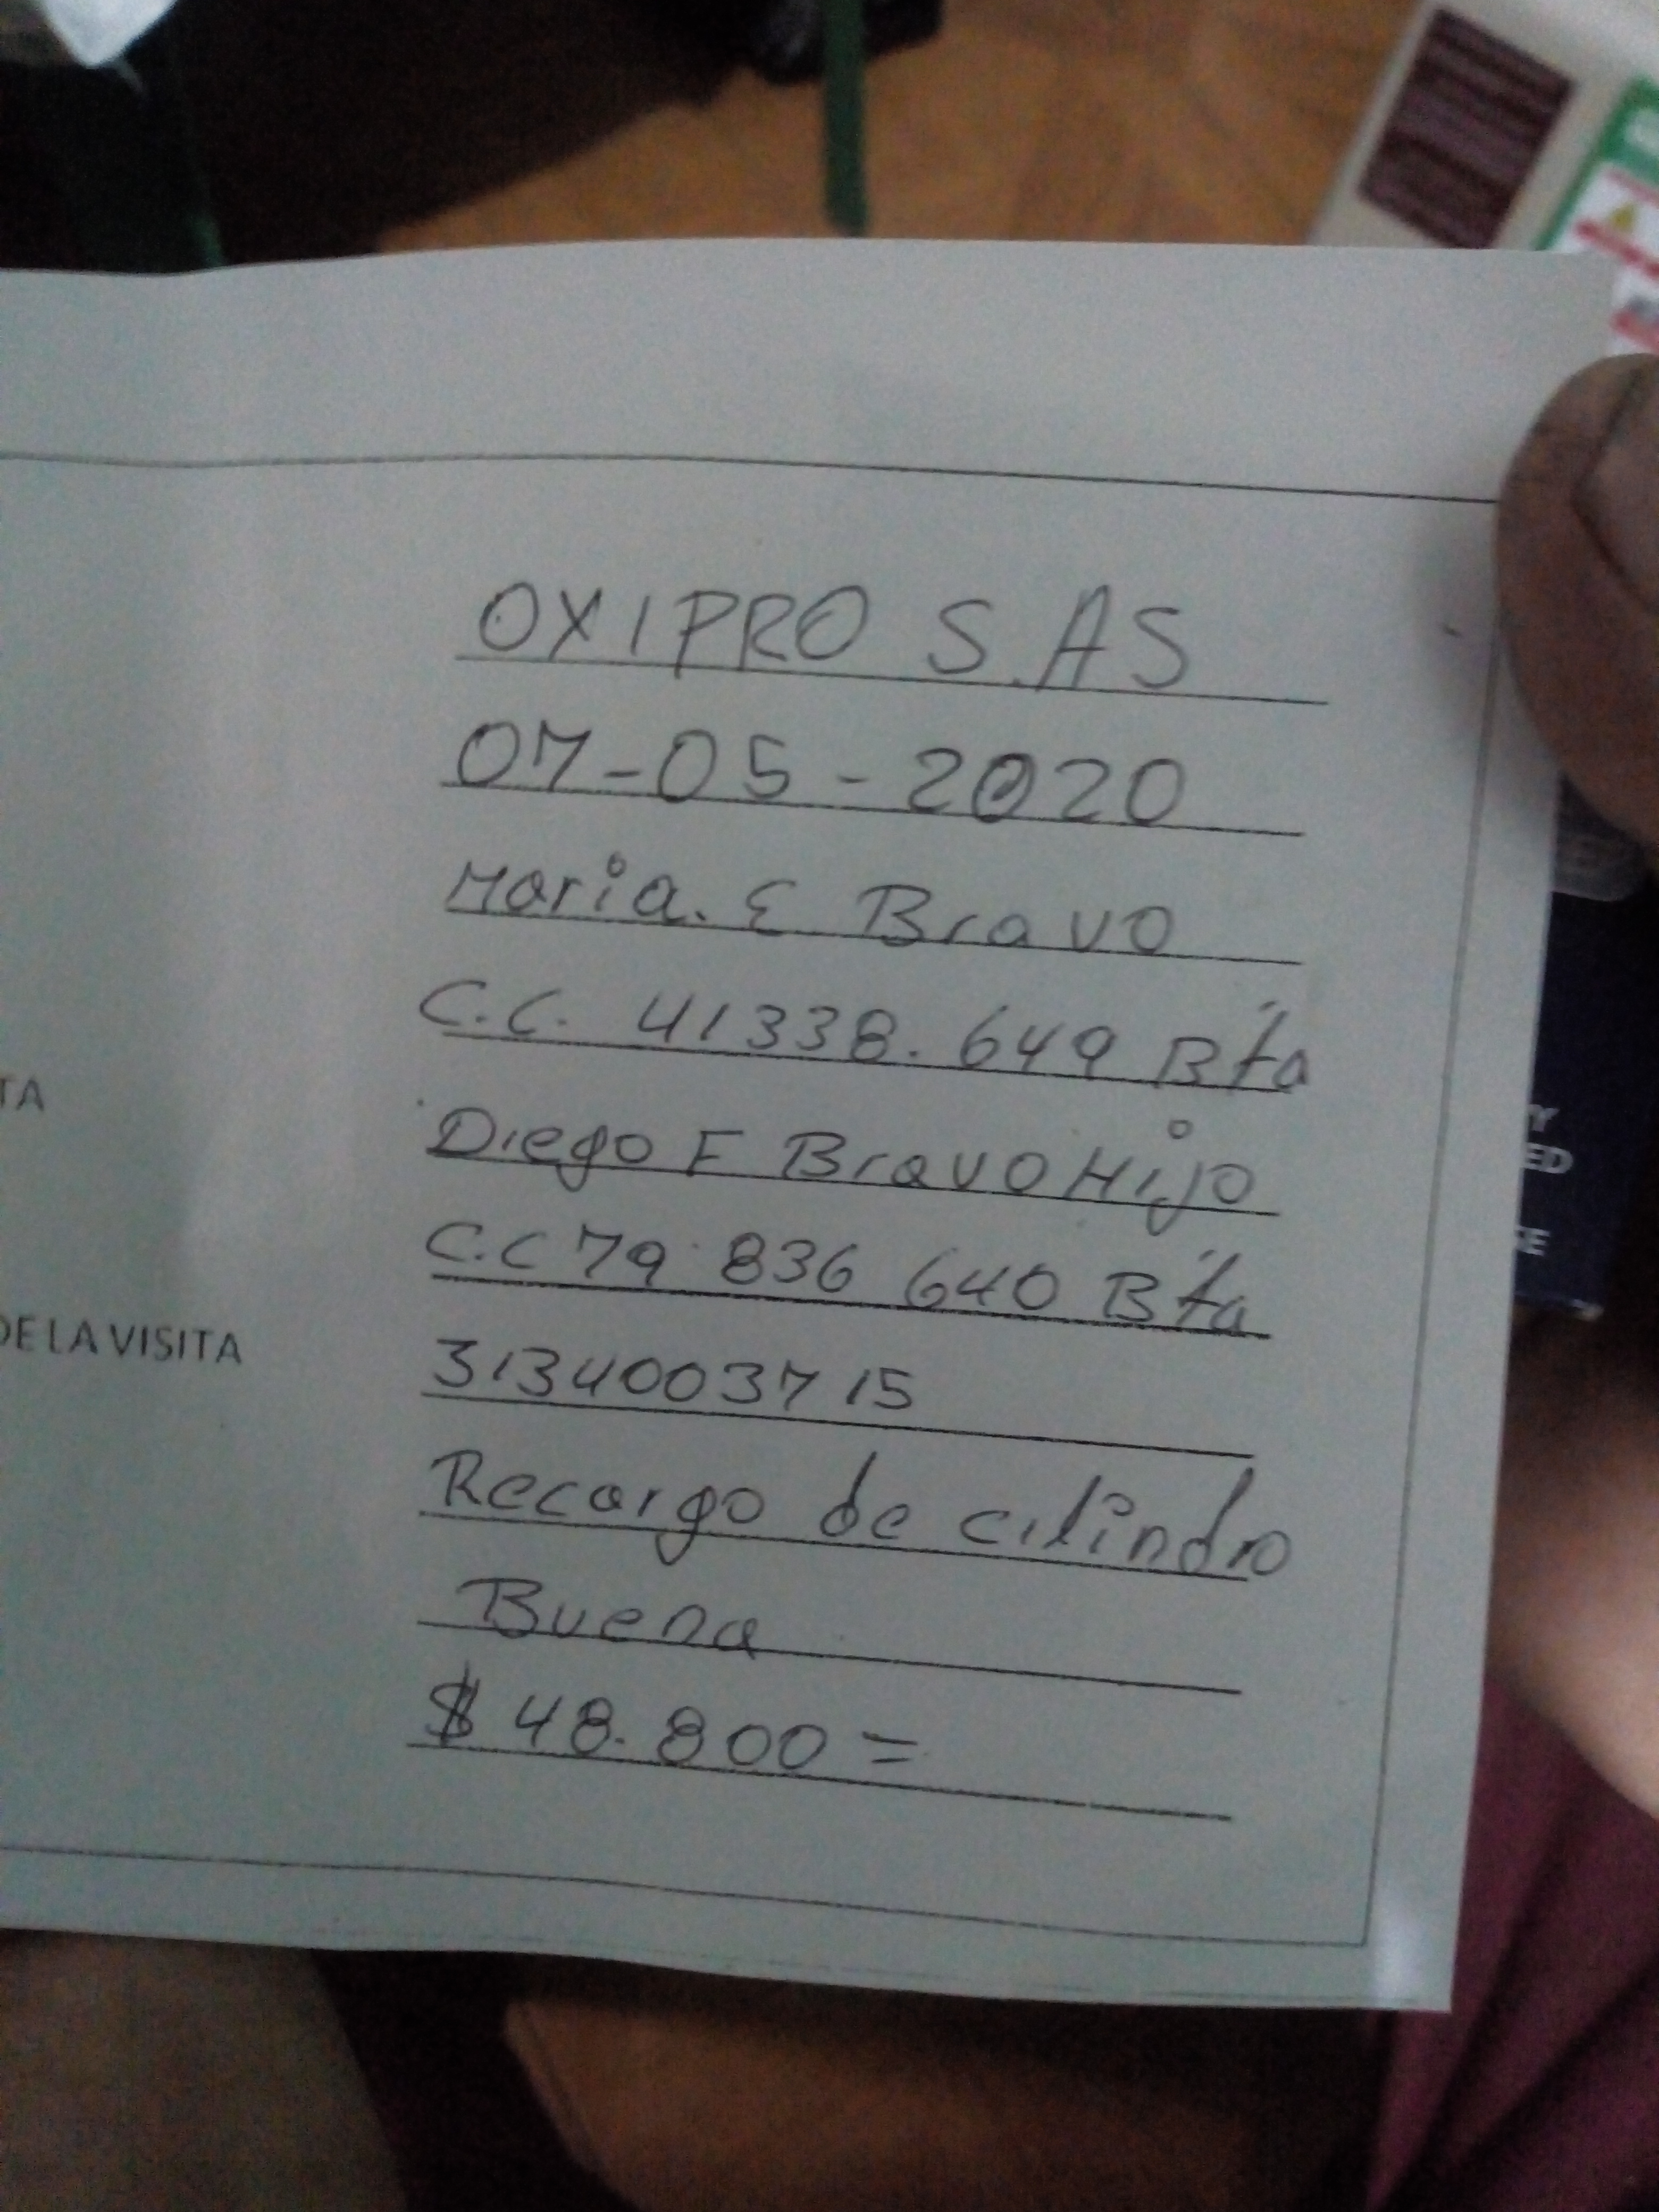 OXIPRO S.AS
07-05-2020
Maria. E Bravo
C.C. 41338.649 Bta
TA
Diego F Bravo Hijo
C.C 79 836 640 Bta
DE LA VISITA
3134003715
Recargo de cilindro
Buena
$ 48.800 =
Y
ED